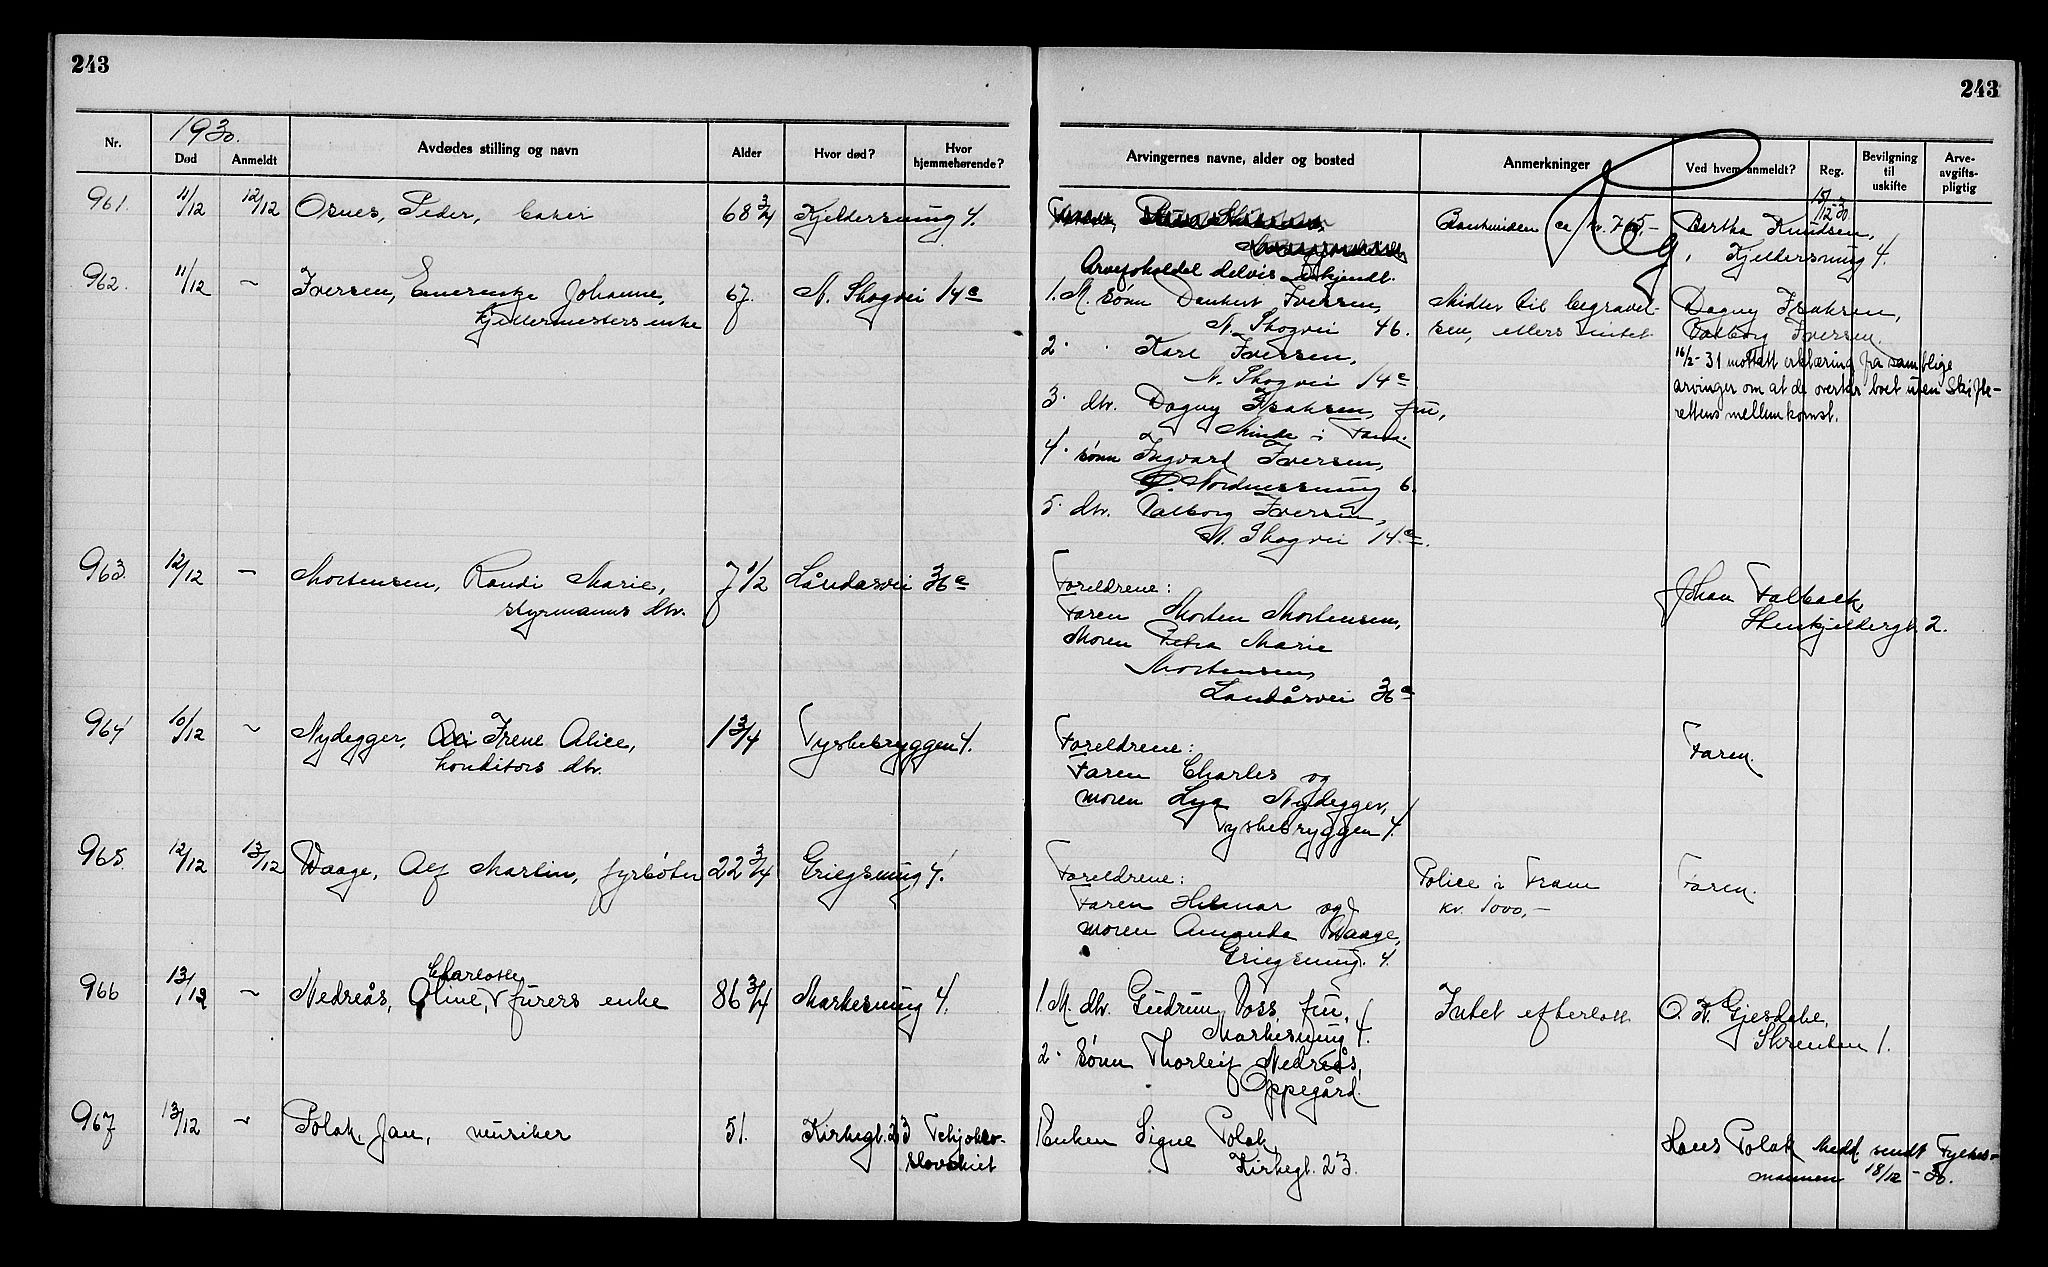 243
243
1930.
Nr.
Død
Anmeldt
Avdødes stilling og navn
Alder
Hvor død?
Hvor hjemmehørende?
Arvingernes navne, alder og bosted
Anmerkninger
Ved hvem anmeldt?
Reg.
Bevilgning til uskifte
Arve-avgifts-pligtig
961. 11/12 12/12 Osnes, Peder, baker 68 3/4 Kjeldersmug 4.
Arveforholdet delvis ukjendt.
Bankinden ca kr. 765,-
Reg.
15/12-30
Bertha Knudsen,
Kjeldersmug 4.
962. 11/12 - Iversen, Emerentze Johanne, 67. N. Skogvei 14c
kjeldermesters enke
1. M. sønn Dankert Iversen,
N. Skogvei 46.
2. Karl Iversen,
N. Skogvei 14c
3. dtr. Dagny Isaksen, fru,
Minde i Fana.
4. sønn Ingvard Iversen,
Nordnessmug 6.
5. dtr. Valborg Iversen,
N. Skogvei 14c.
Midler til begravel-
sen, ellers intet
Dagny Isaksen,
Valborg Iversen.
16/2-31 mottatt erklæring fra samtlige
arvinger om at de overtar boet uten Skifte-
rettens mellemkomst.
963. 12/12 - Mortensen, Randi Marie, 7 1/2 Låndåsvei 36a
styrmanns dtr.
Foreldrene:
Faren Morten Mortensen,
Moren Petra Marie
Mortensen,
Landåsvei 36a
Johan Falback,
Stenkjeldergt. 2.
964 10/12 - Nydegger, Irene Alice, 1 3/4 Tyskebryggen 4.
konditors dtr.
Foreldrene:
Faren Charles og
moren Lya Nydegger,
Tyskebryggen 4
Faren.
965. 12/12 13/12 Waage, Alf Martin, fyrbøter 22 3/4 Griegsmug 4.
Foreldrene:
Faren Hilmar og
moren Amanda Waage,
Griegsmug. 4.
Police i Fram
kr. 1000,-
Faren.
966 13/12 - Nedreås, Oline Charlotte, furers enke 86 3/4 Markesmug 4.
1. M. dtr. Gudrun Voss, fru,
Markesmug 4.
2. sønn Thorleif Nedreås,
Oppegård.
Intet efterlatt
O. K. Gjesdahl,
Skrenten 1.
967 13/12 - Polak, Jan, musiker 51. Kirkegt. 23 Tchjeko-
slovakiet
Enken Signe Polak,
Kirkegt. 23.
Hans Polak Medd. sendt Fylkes-
mannen 18/12-30.